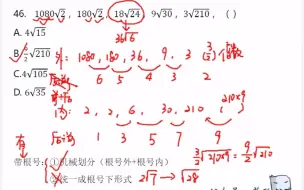 46. 1080√2, 180√2, 18√24, 9√30, 3√210, ( )
36√6
A. 4√15
B. 9/2√210
C. 4√105
D. 6√35
外: 1080, 180, 36, 9, 3 (3/2)
6 5 4 3 2
内: 2, 2, 6, 30, 210, (210×9)
1 3 5 7 9
3/2√210×9 = 9/2√210
带根号: ①机械划分（根号外+根号内）
②统一成根号下形式 2√7→√28